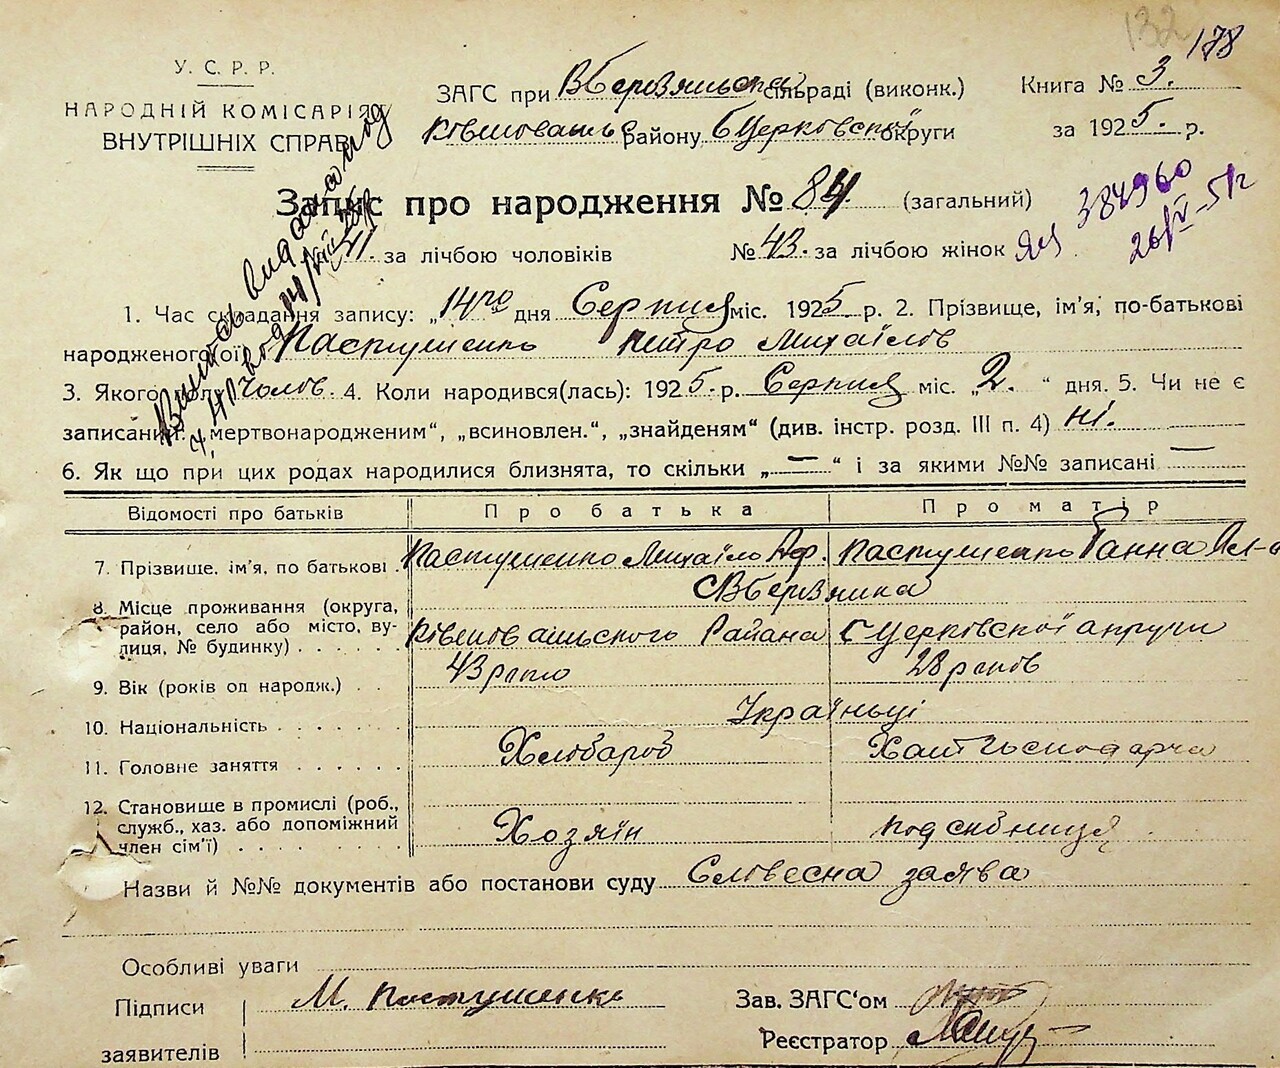 132 178
У. С. Р. Р.
НАРОДНІЙ КОМІСАРІЯТ
ВНУТРІШНІХ СПРАВ
ЗАГС при сільраді (виконк.)
району Б Церковської округи
Книга № 3.
за 1925. р.
Запис про народження № 84. (загальний)
41. за лічбою чоловіків № 43. за лічбою жінок
384960
1. Час складання запису: „14го дня Серпня міс. 1925 р. 2. Прізвище, ім'я, по-батькові
народженого(ої) Пастушенко Петро Михаїлов
3. Якого полу чолов. 4. Коли народився(лась): 1925 р. Серпня міс. „2. “ дня. 5. Чи не є
записаний: „мертвонародженим“, „всиновлен.“, „знайденям“ (див. інстр. розд. III п. 4) ні.
6. Як що при цих родах народилися близнята, то скільки „—“ і за якими №№ записані —
Відомості про батьків Про батька Про матір
7. Прізвище, ім'я, по батькові Пастушенко Михаїло Пастушенко Ганна
8. Місце проживання (округа,
район, село або місто, ву-
лиця, № будинку) Района Б Церковської
9. Вік (років од народж.) 43 28
10. Національність Українці
11. Головне заняття Хлібароб Хатн Господарча
12. Становище в промислі (роб.,
служб., хаз. або допоміжний
член сім'ї) Хозяїн
Назви й №№ документів або постанови суду Словесна заява
Особливі уваги
Підписи
заявителів М. Пастушенко
Зав. ЗАГС‘ом
Реєстратор